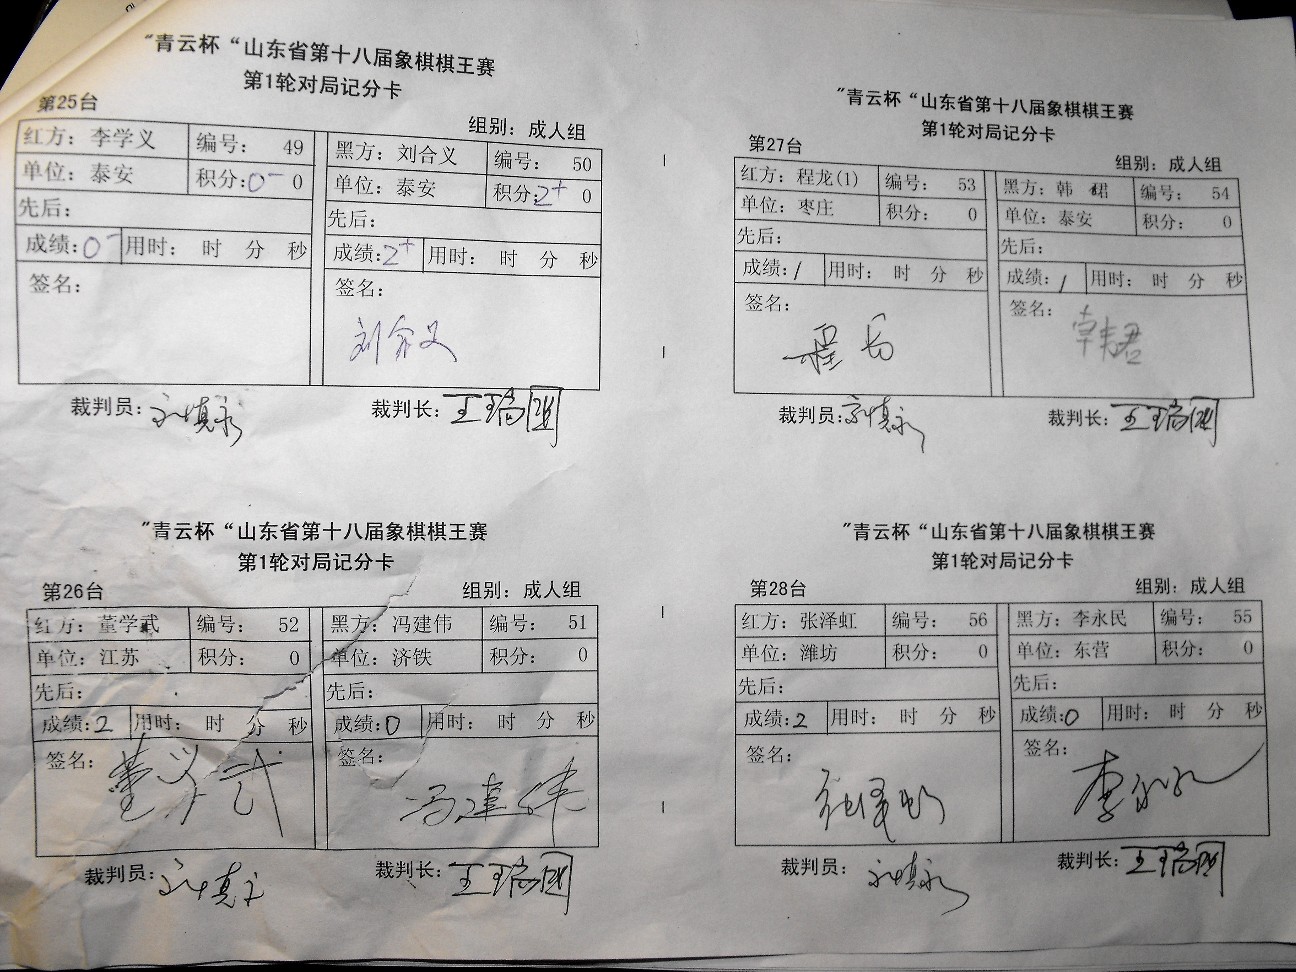 "青云杯“山东省第十八届象棋棋王赛
第1轮对局记分卡
第25台
组别：成人组
红方：李学义 编号： 49 黑方：刘合义 编号： 50
单位：泰安 积分：0- 0 单位：泰安 积分：2+ 0
先后： 先后：
成绩：0- 用时： 时 分 秒 成绩：2+ 用时： 时 分 秒
签名： 签名：
刘合义
裁判员： 裁判长：王瑞国
"青云杯“山东省第十八届象棋棋王赛
第1轮对局记分卡
第27台
组别：成人组
红方：程龙(1) 编号： 53 黑方：韩 珺 编号： 54
单位：枣庄 积分： 0 单位：泰安 积分： 0
先后： 先后：
成绩：1 用时： 时 分 秒 成绩：1 用时： 时 分 秒
签名： 签名：
程龙
裁判员： 裁判长：王瑞国
"青云杯“山东省第十八届象棋棋王赛
第1轮对局记分卡
第26台
组别：成人组
红方：董学武 编号： 52 黑方：冯建伟 编号： 51
单位：江苏 积分： 0 单位：济铁 积分： 0
先后： 先后：
成绩：2 用时： 时 分 秒 成绩：0 用时： 时 分 秒
签名： 签名：
董学武 冯建伟
裁判员： 裁判长：王瑞国
"青云杯“山东省第十八届象棋棋王赛
第1轮对局记分卡
第28台
组别：成人组
红方：张泽虹 编号： 56 黑方：李永民 编号： 55
单位：潍坊 积分： 0 单位：东营 积分： 0
先后： 先后：
成绩：2 用时： 时 分 秒 成绩：0 用时： 时 分 秒
签名： 签名：
张泽虹 李永民
裁判员： 裁判长：王瑞国